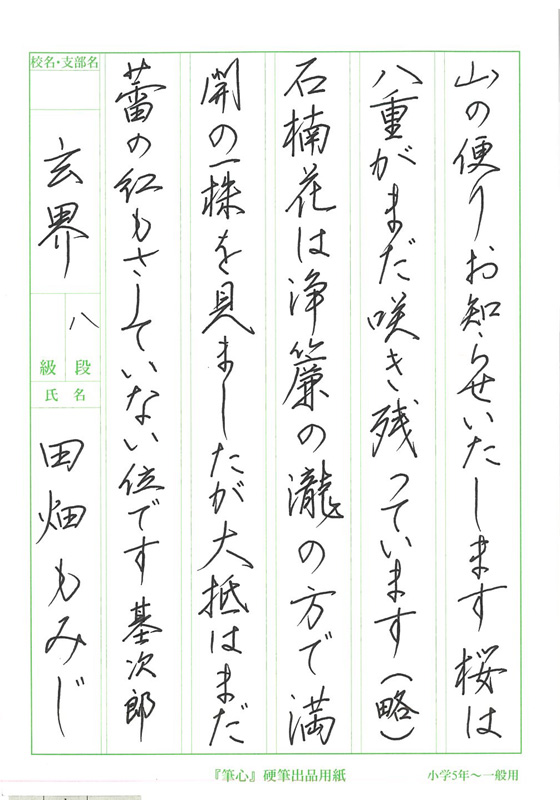 山の便りお知らせいたします 桜は
八重がまだ咲き残っています(略)
石楠花は浄簾の瀧の方で満
開の一株を見ましたが大抵はまだ
蕾の紅もさしていない位です 基次郎
校名・支部名
玄界
八段
級
氏名
田畑もみじ
『筆心』硬筆出品用紙
小学5年〜一般用